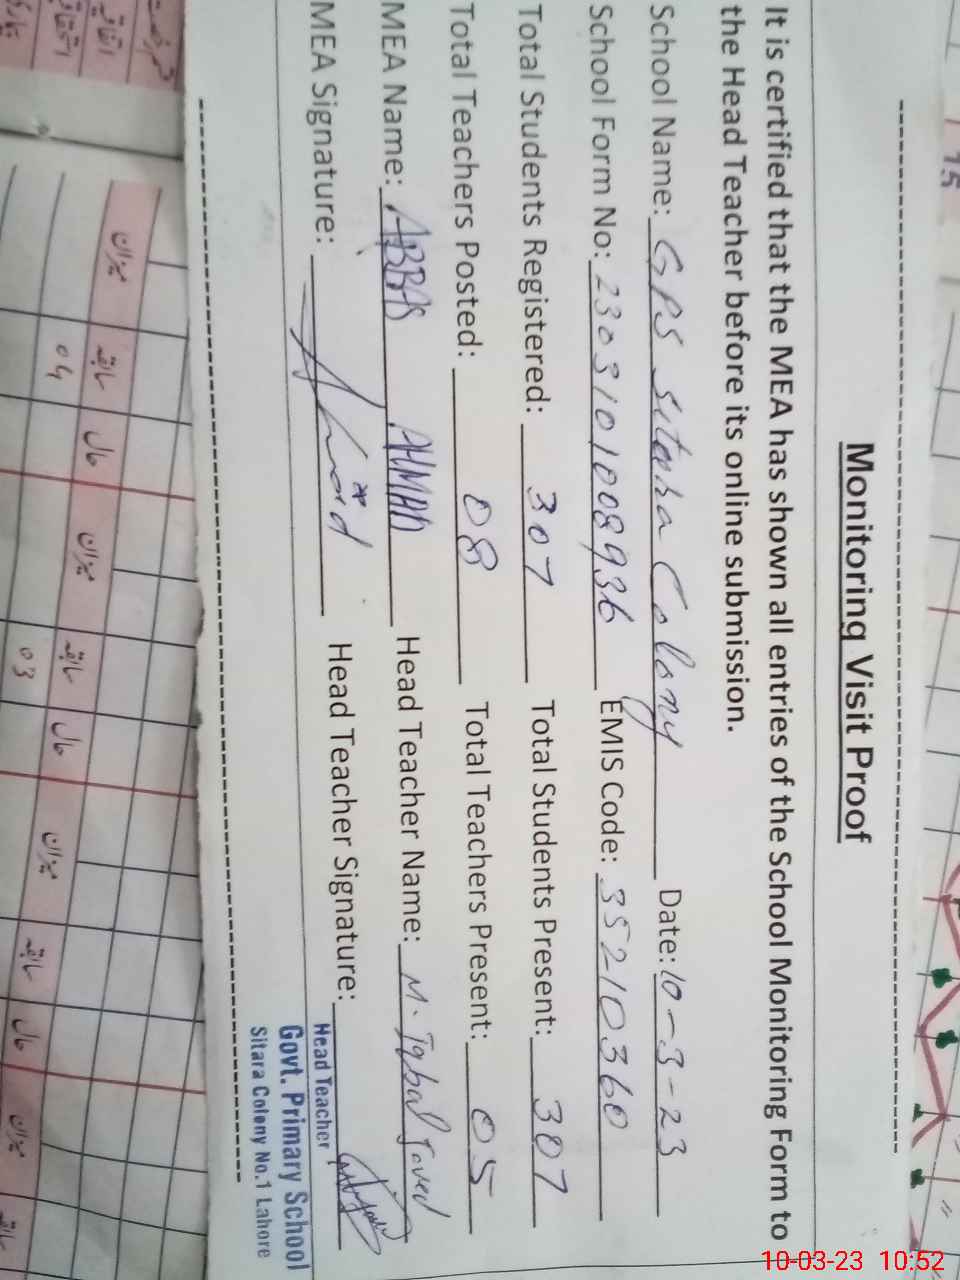 Monitoring Visit Proof
It is certified that the MEA has shown all entries of the School Monitoring Form to
the Head Teacher before its online submission.
School Name: GPS Sitara Colony Date: 10-3-23
School Form No: 2303101008936 EMIS Code: 35210360
Total Students Registered: 307 Total Students Present: 307
Total Teachers Posted: 08 Total Teachers Present: 05
MEA Name: ABBAS AHMAD Head Teacher Name: M. Iqbal Javed
MEA Signature: Head Teacher Signature:
Head Teacher
Govt. Primary School
Sitara Colony No.1 Lahore
میزان سابقہ حال میزان سابقہ حال میزان سابقہ حال میزان سابقہ
04 03
15
10-03-23 10:52